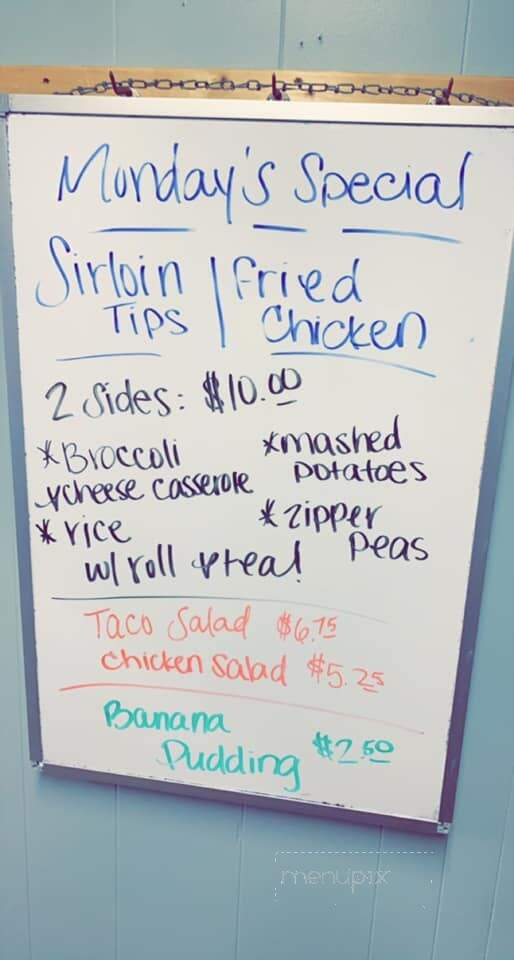 Monday's Special
Sirloin Tips | Fried Chicken
2 Sides: $10.00
*Broccoli & cheese casserole
*mashed potatoes
*rice
*zipper peas
w/ roll & tea!
Taco Salad $6.75
chicken salad $5.25
Banana Pudding $2.50
menupix